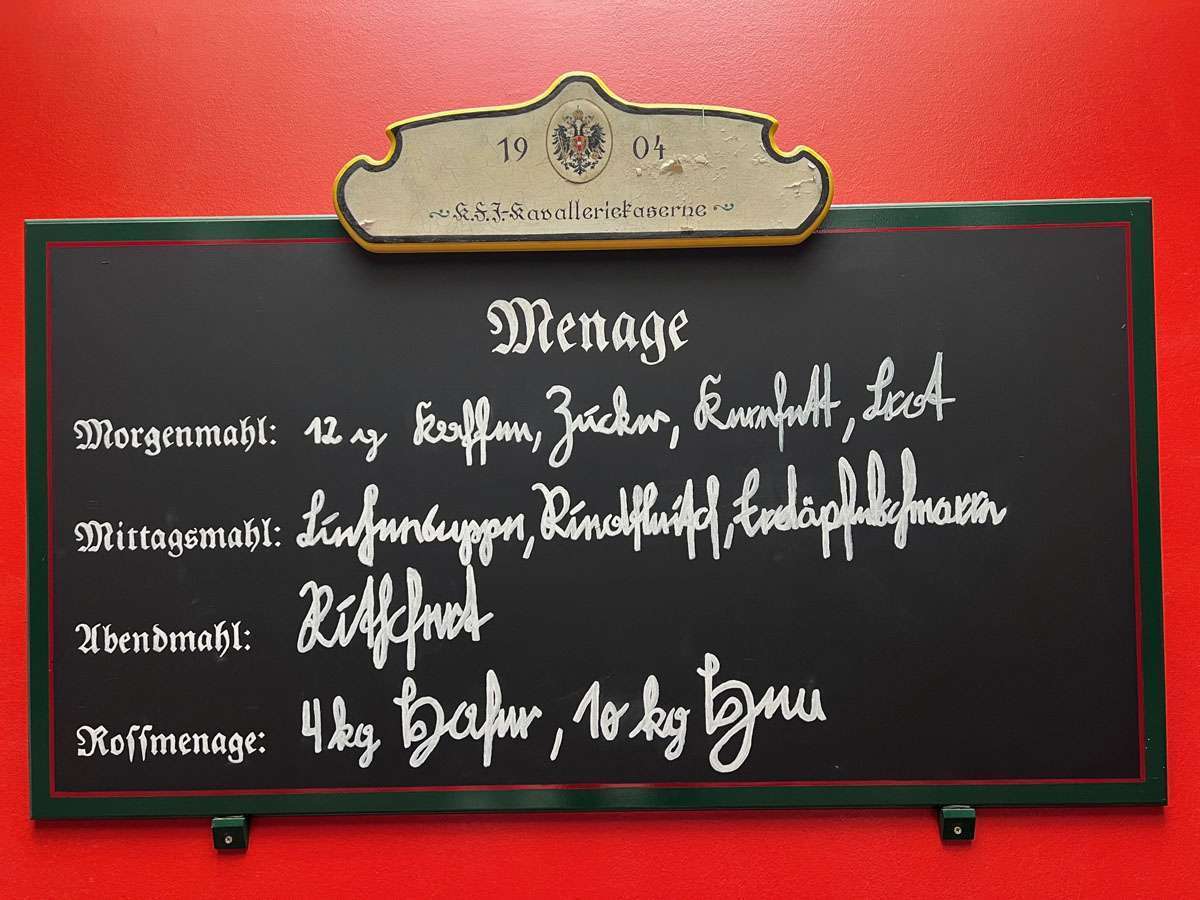 19 04
K.F.J.-Kavalleriekaserne
Menage
Morgenmahl: 12 g Kaffee, Zucker, Kernfett, Brot
Mittagsmahl: Linsensuppe, Rindfleisch, Erdäpfelschmarrn
Abendmahl: Ritschert
Roſſmenage: 4 kg Hafer, 10 kg Heu